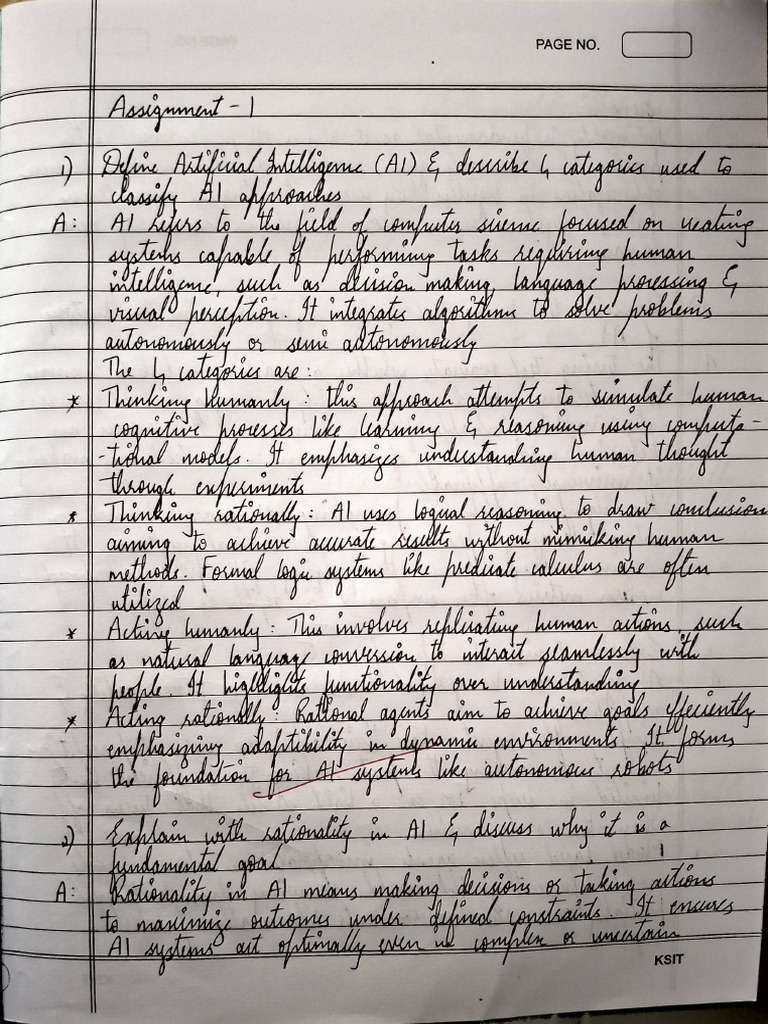 PAGE NO.
Assignment - 1
1) Define Artificial Intelligence (AI) & describe 4 categories used to
classify AI approaches
A: AI refers to the field of computer science focused on creating
systems capable of performing tasks requiring human
intelligence, such as decision making, language processing &
visual perception. It integrates algorithms to solve problems
autonomously or semi autonomously
The 4 categories are:
* Thinking humanly: this approach attempts to simulate human
cognitive processes like learning & reasoning using computa-
-tional models. It emphasizes understanding human thought
through experiments
* Thinking rationally: AI uses logical reasoning to draw conclusion
aiming to achieve accurate results without mimicking human
methods. Formal logic systems like predicate calculus are often
utilized
* Acting humanly: This involves replicating human actions, such
as natural language conversion to interact seamlessly with
people. It highlights functionality over understanding
* Acting rationally: Rational agents aim to achieve goals effeciently
emphasizing adaptibility in dynamic environments. It forms
the foundation for AI systems like autonomous robots
2) Explain with rationality in AI & discuss why it is a
fundamental goal
A: Rationality in AI means making decisions or taking actions
to maximize outcomes under defined constraints. It ensures
AI systems act optimally even in complex or uncertain
KSIT